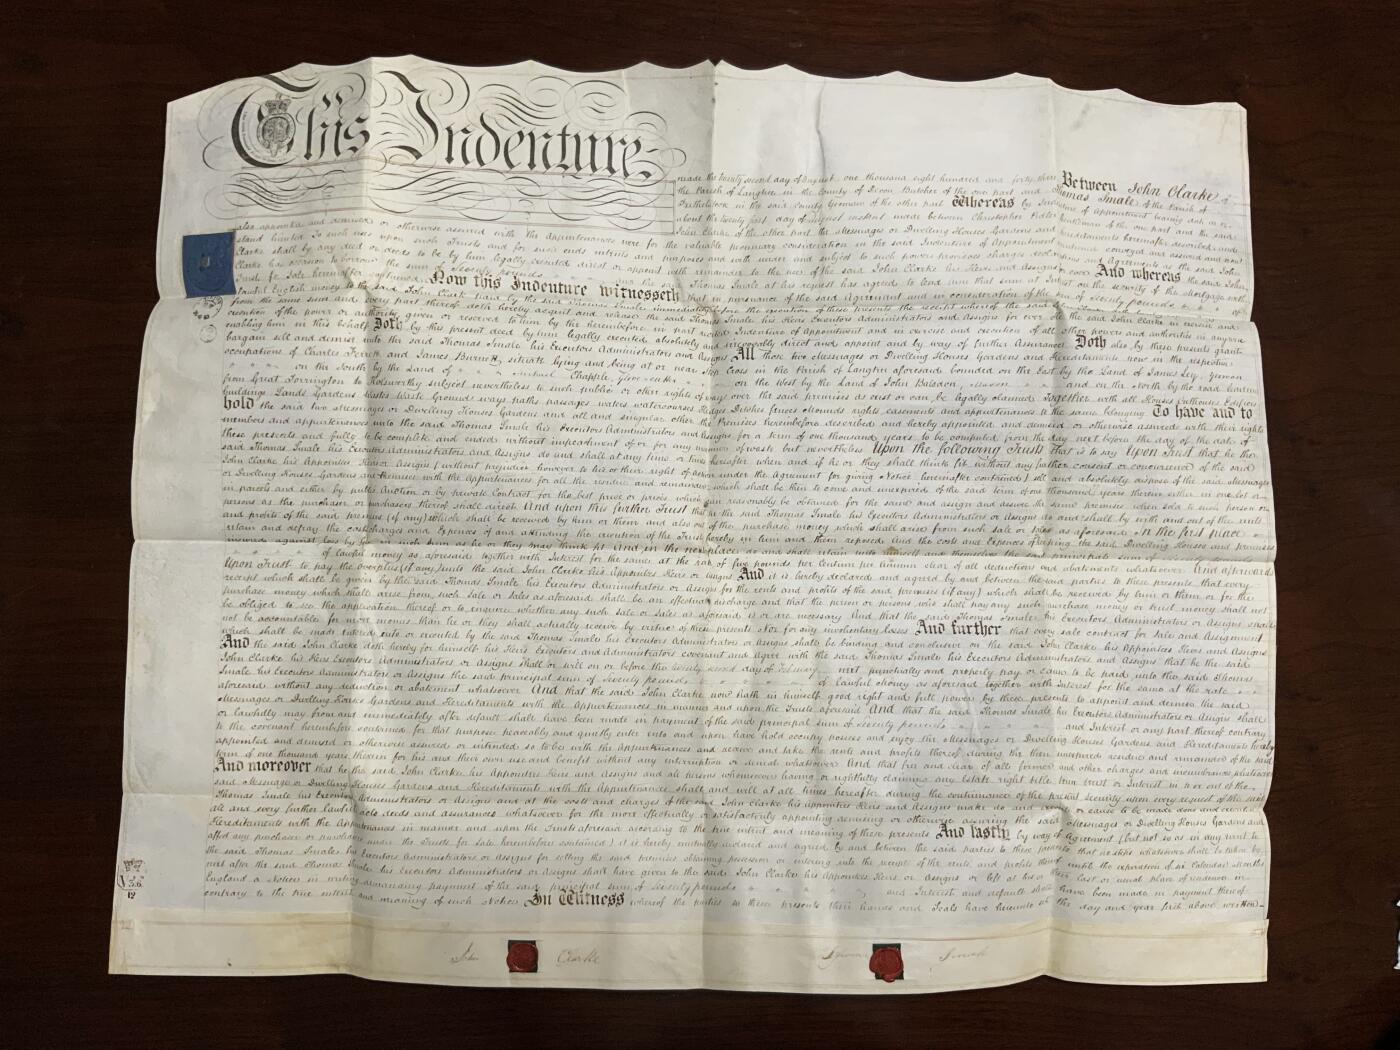 This Indenture
made the twenty second day of August one thousand eight hundred and forty three Between John Clarke of
the Parish of Langtree in the County of Devon Butcher of the one part and Thomas Smale of the Parish of
in the said County Yeoman of the other part Whereas by Indenture of appointment bearing date on or
about the twenty first day of August instant made between Christopher of the one part and the said
John Clarke of the other part the Messuages or Dwelling Houses Gardens and Hereditaments hereinafter described and
also appointed and demised or otherwise assured with the appurtenances were for the valuable pecuniary consideration in the said Indenture of Appointment conveyed and assured and now
stand limited To such uses upon such Trusts and for such ends intents and purposes and with under and subject to such powers provisoes charges and Agreements as the said John
Clarke shall by any deed or deeds to be by him legally executed direct or appoint with remainder to the use of the said John Clarke his Heirs and Assigns for ever And whereas the said John
Clarke has occasion to borrow the sum of Seventy pounds and the said Thomas Smale at his request has agreed to lend him that sum at Interest on the security of the Mortgage with
Trusts for Sale hereinafter contained Now this Indenture witnesseth that in pursuance of the said Agreement and in consideration of the sum of Seventy pounds of
lawful English money to the said John Clarke paid by the said Thomas Smale immediately before the execution of these presents the receipt whereof the said John Clarke
from the same sum and every part thereof doth hereby acquit and release the said Thomas Smale his Heirs Executors Administrators and Assigns for ever He the said John Clarke in exercise and
execution of the power or authority given or reserved to him by the hereinbefore in part recited Indenture of Appointment and in exercise and execution of all other powers and authorities in anywise
enabling him in this behalf Doth by this present deed by him legally executed absolutely and irrevocably direct and appoint and by way of further Assurance Doth also by these presents grant
bargain sell and demise unto the said Thomas Smale his Executors Administrators and Assigns All those two Messuages or Dwelling Houses Gardens and Hereditaments now in the respective
occupations of Charles and James Burnett, situate lying and being at or near Stop Cross in the Parish of Langtree aforesaid bounded on the East by the Land of James Ley, Yeoman
on the South by the Land of Michael Chapple, on the West by the Land of John and on the North by the road leading
from Great Torrington to Holsworthy subject nevertheless to such public or other rights of way over the said premises as exist or can be legally claimed Together with all Houses Outhouses Edifices
buildings Lands Gardens Wastes Waste Grounds ways paths passages waters watercourses Hedges Ditches fences Mounds rights easements and appurtenances to the same belonging To have and to
hold the said two Messuages or Dwelling Houses Gardens and all and singular other the Premises hereinbefore described and hereby appointed and demised or otherwise assured with their rights
members and appurtenances unto the said Thomas Smale his Executors Administrators and Assigns for a term of one thousand years to be computed from the day next before the day of the date of
these presents and fully to be complete and ended without impeachment of or for any manner of waste but nevertheless Upon the following Trusts that is to say Upon Trust that he the
said Thomas Smale his Executors Administrators and Assigns do and shall at any time or times hereafter when and if he or they shall think fit without any further consent or concurrence of the said
John Clarke his Appointees Heirs or Assigns (without prejudice however to his or their right of action under the Agreement for giving Notice hereinafter contained) sell and absolutely dispose of the said Messuages
or Dwelling Houses Gardens and Premises with the Appurtenances for all the residue and remainder which shall be then to come and unexpired of the said term of one thousand years therein either in one lot or
in parcels and either by public Auction or by private Contract for the best price or prices which can reasonably be obtained for the same and assign and assure the same premises when sold to such person or
persons as the purchaser or purchasers thereof shall direct And upon this further Trust that he the said Thomas Smale his Executors Administrators or Assigns do and shall by with and out of the rents
and profits of the said premises (if any) which shall be received by him or them and also out of the purchase money which shall arise from such sale or sales as aforesaid In the first place
retain and defray the costs charges and Expences of and attending the execution of the Trust hereby in him and them reposed And the costs and Expences of keeping the said Dwelling Houses and premises
insured against loss by fire in such sum as he or they may think fit And in the next place do and shall retain unto himself and themselves the said principal sum of
of lawful money as aforesaid together with Interest for the same at the rate of five pounds per Centum per Annum clear of all deductions and abatements whatsoever And afterwards
Upon Trust to pay the overplus (if any) unto the said John Clarke his Appointees Heirs or Assigns And it is hereby declared and agreed by and between the said parties to these presents that every
receipt which shall be given by the said Thomas Smale his Executors Administrators or Assigns for the rents and profits of the said premises (if any) which shall be received by him or them or for the
purchase money which shall arise from such Sale or Sales as aforesaid shall be an effectual discharge and that the person or persons who shall pay any such purchase money or trust money shall not
be obliged to see the application thereof or to enquire whether any such Sale or Sales as aforesaid is or are necessary And that the said Thomas Smale his Executors Administrators or Assigns shall
not be accountable for more monies than he or they shall actually receive by virtue of these presents Nor for any involuntary losses And further that every sale contract for Sale and Assignment
which shall be made entered into or executed by the said Thomas Smale his Executors Administrators or Assigns shall be binding and conclusive on the said John Clarke his Appointees Heirs and Assigns
And the said John Clarke doth hereby for himself his Heirs Executors and Administrators covenant and agree with the said Thomas Smale his Executors Administrators and Assigns that he the said
John Clarke his Heirs Executors Administrators or Assigns Shall or will on or before the twenty second day of February next punctually and properly pay or cause to be paid unto the said Thomas
Smale his Executors Administrators or Assigns the said principal sum of Seventy pounds of lawful Money as aforesaid together with Interest for the same at the rate
aforesaid without any deduction or abatement whatsoever And that the said John Clarke now hath in himself good right and full power by these presents to appoint and demise the said
Messuages or Dwelling Houses Gardens and Hereditaments with the Appurtenances in manner and upon the Trusts aforesaid And that the said Thomas Smale his Executors Administrators or Assigns shall
or lawfully may from and immediately after default shall have been made in payment of the said principal sum of Seventy pounds and Interest or any part thereof contrary
to the covenant hereinbefore contained for that purpose peaceably and quietly enter into and upon have hold occupy possess and enjoy the Messuages or Dwelling Houses Gardens and Hereditaments hereby
appointed and demised or otherwise assured or intended so to be with the Appurtenances and receive and take the rents and profits thereof during the then unexpired residue and remainder of the said
term of one thousand years therein for his and their own use and benefit without any interruption or denial whatsoever And that free and clear of all former and other charges and incumbrances whatsoever
And moreover that he the said John Clarke his Appointees Heirs and Assigns and all persons whomsoever having or rightfully claiming any Estate right title trust or Interest in or out of the
said Messuage or Dwelling Houses Gardens and Hereditaments with the Appurtenances shall and will at all times hereafter during the continuance of the present Security upon every request of the said
Thomas Smale his Executors Administrators or Assigns and at the costs and charges of the said John Clarke his appointees Heirs and Assigns make do and execute or cause to be made done and executed
all and every further lawful acts deeds and assurances whatsoever for the more effectually or satisfactorily appointing demising or otherwise assuring the said Messuages or Dwelling Houses Gardens and
Hereditaments with the Appurtenances in manner and upon the Trusts aforesaid according to the true intent and meaning of these presents And lastly by way of Agreement (but not so as in any event to
affect any purchaser or purchasers under the Trusts for Sale hereinbefore contained) it is hereby mutually declared and agreed by and between the said parties to these presents that no steps whatsoever shall be taken by
the said Thomas Smale his Executors Administrators or Assigns for selling the said premises obtaining possession or entering into the receipt of the rents and profits thereof until the expiration of six Calendar Months
next after the said Thomas Smale his Executors Administrators or Assigns shall have given to the said John Clarke his Appointees Heirs or Assigns or left at his or their last or usual place of residence in
England a Notice in writing demanding payment of the said principal sum of Seventy pounds and Interest and default shall have been made in payment thereof
contrary to the true intent and meaning of such Notice In Witness whereof the parties to these presents their hands and Seals have hereunto set the day and year first above written
John Clarke
Thomas Smale